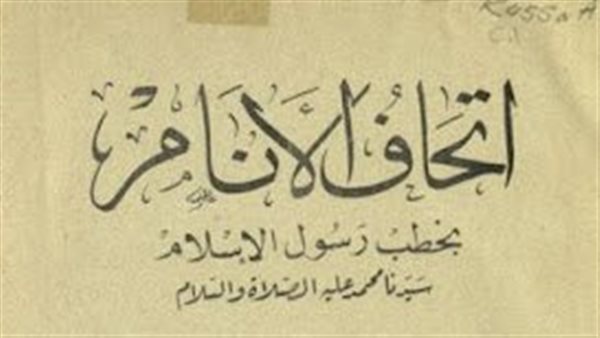 إتحاف الأنام
بخطب رسول الإسلام
سيدنا محمد عليه الصلاة والسلام